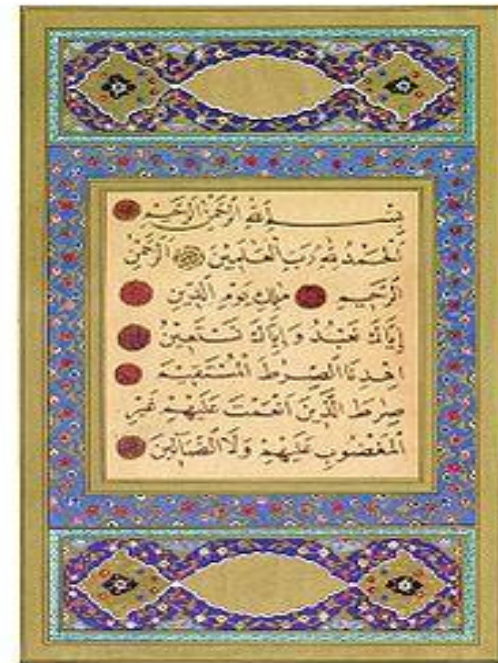 بِسْمِ اللهِ الرَّحْمٰنِ الرَّحِيمِ
اَلْحَمْدُ لِلّٰهِ رَبِّ الْعٰلَمِينَ الرَّحْمٰنِ
الرَّحِيمِ مٰلِكِ يَوْمِ الدِّينِ
إِيَّاكَ نَعْبُدُ وَإِيَّاكَ نَسْتَعِينُ
اِهْدِنَا الصِّرٰطَ الْمُسْتَقِيمَ
صِرٰطَ الَّذِينَ اَنْعَمْتَ عَلَيْهِمْ غَيْرِ
الْمَغْضُوبِ عَلَيْهِمْ وَلَا الضَّالِّينَ